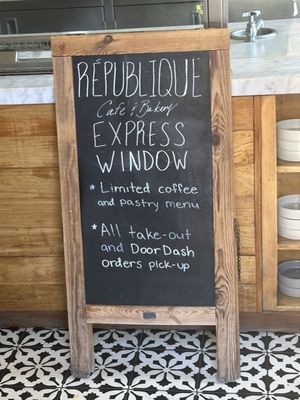 RÉPUBLIQUE
Café & Bakery
EXPRESS
WINDOW
* Limited coffee
and pastry menu
* All take-out
and DoorDash
orders pick-up